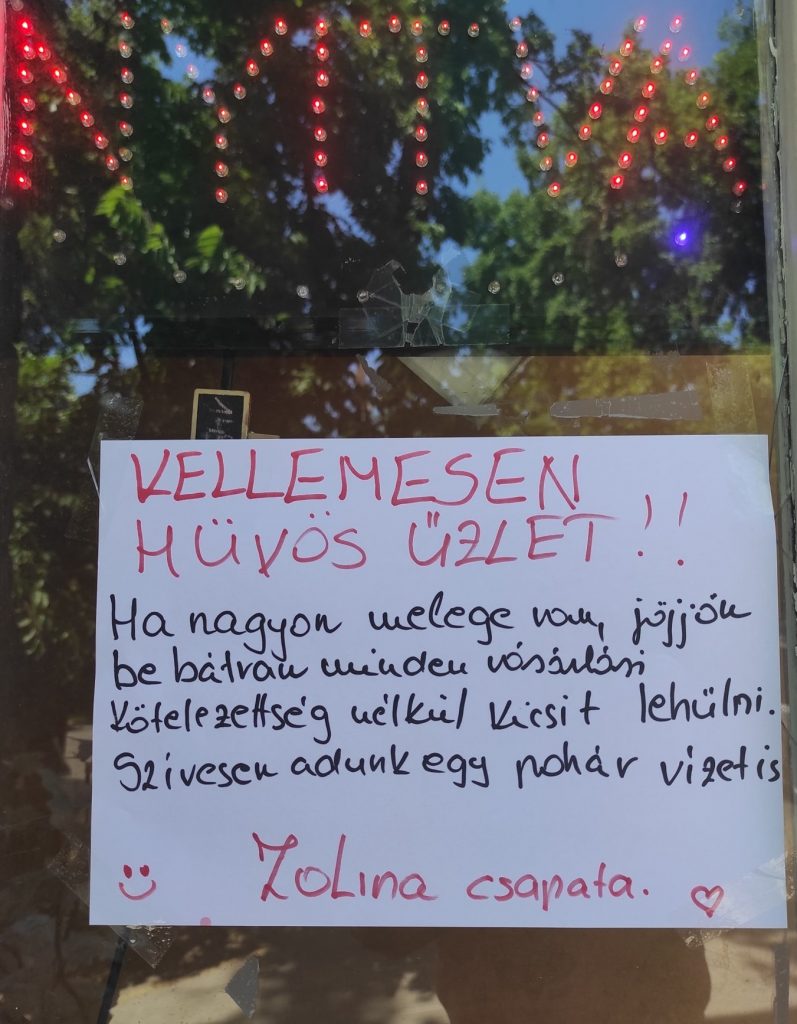 NYITVA
KELLEMESEN
HÜVÖS ÜZLET!!
Ha nagyon melege van, jöjjön
be bátran minden vásárlási
kötelezettség nélkül kicsit lehülni.
Szivesen adunk egy pohár vizet is
Zolina csapata.